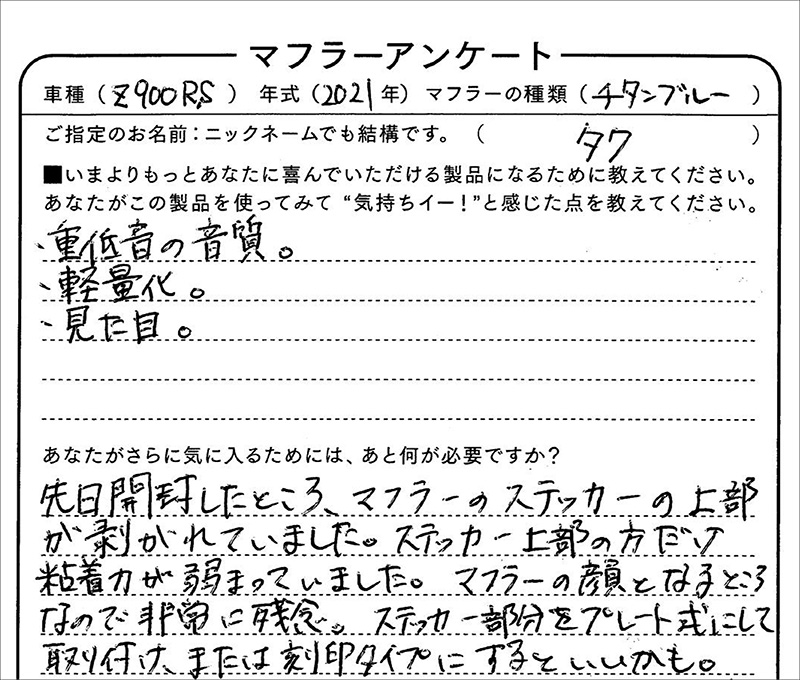 マフラーアンケート
車種（Z900RS）年式（2021年）マフラーの種類（チタンブルー）
ご指定のお名前：ニックネームでも結構です。（タワ）
■いまよりもっとあなたに喜んでいただける製品になるために教えてください。
あなたがこの製品を使ってみて“気持ちイー！”と感じた点を教えてください。
、重低音の音質。
、軽量化。
、見た目。
あなたがさらに気に入るためには、あと何が必要ですか？
先日開封したところ、マフラーのステッカーの上部
が剥がれていました。ステッカー上部の方だけ
粘着力が弱まっていました。マフラーの顔となるところ
なので非常に残念。ステッカー部分をプレート式にして
取り付け、または刻印タイプにするといいかも。